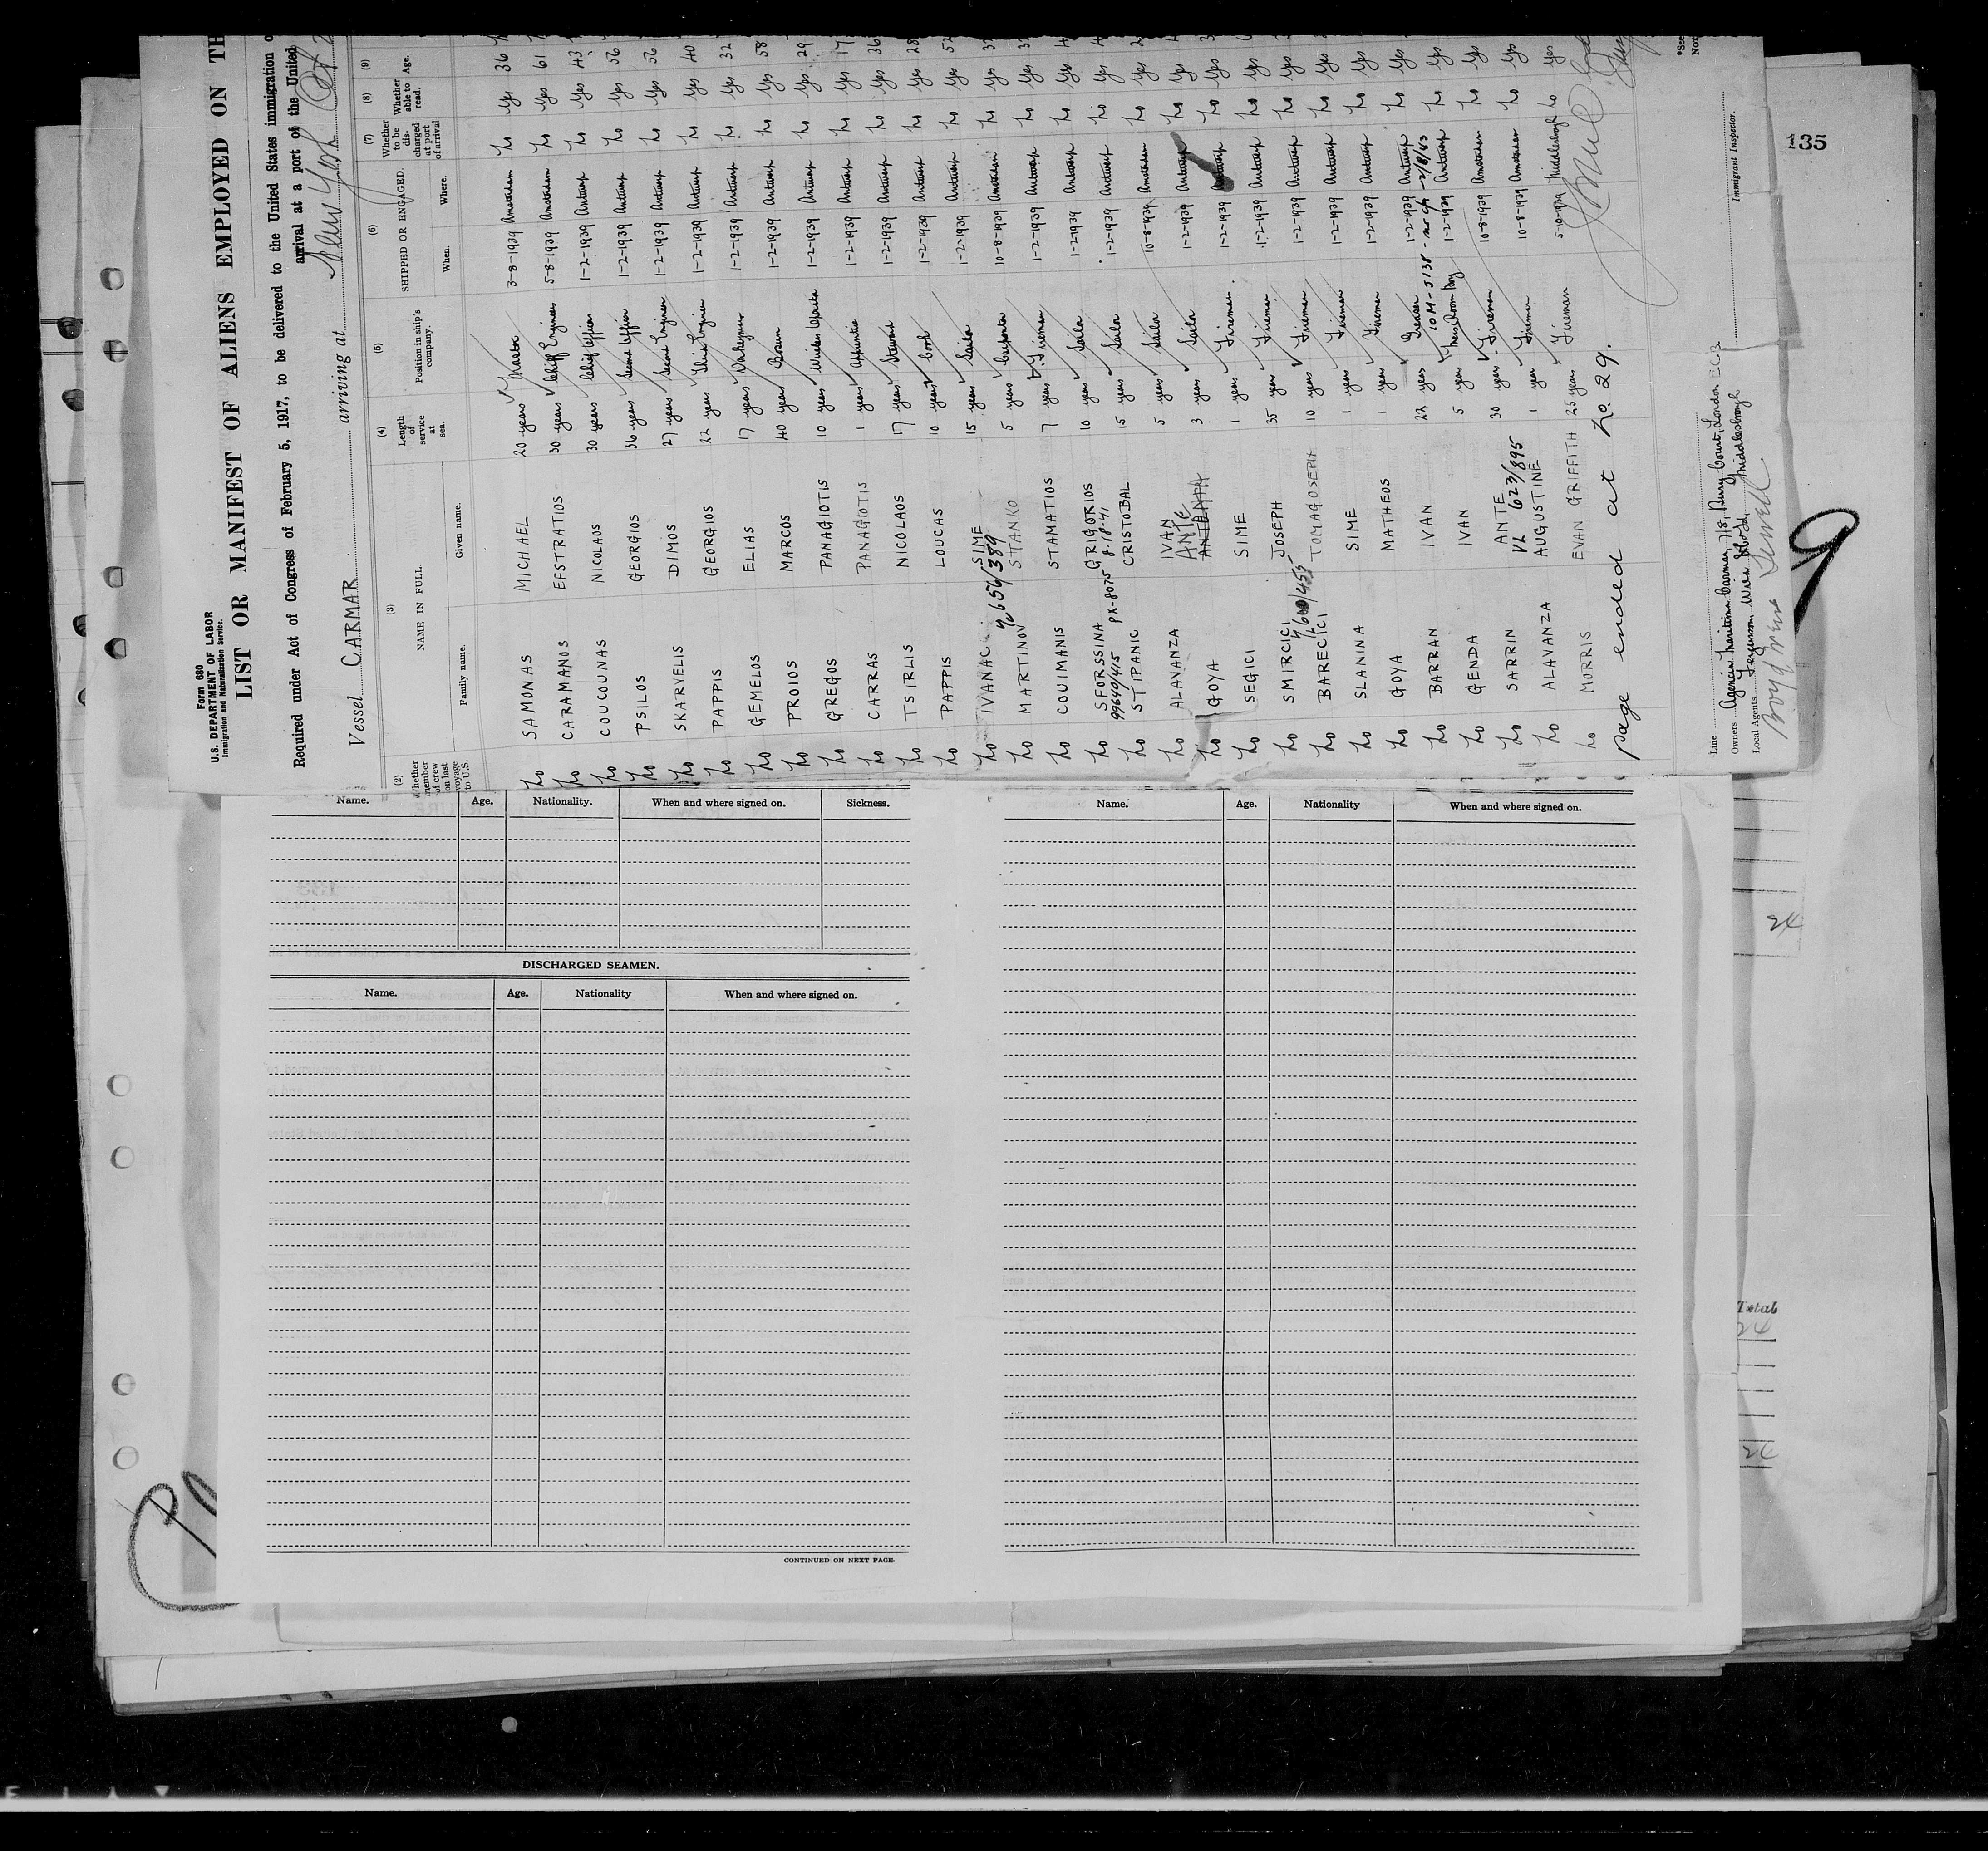 Form 680
U.S. DEPARTMENT OF LABOR
Immigration and Naturalization Service.
LIST OR MANIFEST OF ALIENS EMPLOYED ON TH
Required under Act of Congress of February 5, 1917, to be delivered to the United States immigration o
arrival at a port of the United
Vessel CARMAR arriving at New York Oct 2
(2) (3) (4) (5) (6) (7) (8) (9)
Whether member of crew on last voyage to U.S. NAME IN FULL. Length of service at sea. Position in ship's company. SHIPPED OR ENGAGED. Whether to be discharged at port of arrival Whether able to read. Age.
Family name. Given name. When. Where.
no SAMONAS MICHAEL 20 years Master 3-8-1939 Amsterdam no yes 36
no CARAMANOS EFSTRATIOS 30 years Chiff Engineer 5-8-1939 Amsterdam no yes 61
no COUCOUNAS NICOLAOS 30 years Chiff Officer 1-2-1939 Antwerp no yes 43
no PSILOS GEORGIOS 36 years Second Officer 1-2-1939 Antwerp no yes 56
no SKARVELIS DIMOS 27 years Second Engineer 1-2-1939 Antwerp no yes 56
no PAPPIS GEORGIOS 22 years Third Engineer 1-2-1939 Antwerp no yes 40
no GEMELOS ELIAS 17 years Donkeyman 1-2-1939 Antwerp no yes 32
no PROIOS MARCOS 40 years Bosun 1-2-1939 Antwerp no yes 58
no GREGOS PANAGIOTIS 10 years Wireless Operator 1-2-1939 Antwerp no yes 29
no CARRAS PANAGIOTIS 1 years Apprentice 1-2-1939 Antwerp no yes 17
no TSIRLIS NICOLAOS 17 years Steward 1-2-1939 Antwerp no yes 36
no PAPPIS LOUCAS 10 years Cook 1-2-1939 Antwerp no yes 28
no IVANAC SIME 15 years Sailor 1-2-1939 Antwerp no yes 52
656/389
no MARTINOV STANKO 5 years Carpenter 10-8-1939 Amsterdam no yes
no COUIMANIS STAMATIOS 7 years Fireman 1-2-1939 Antwerp no yes
no SFORSSINA GRIGORIOS 10 years Sailor 1-2-1939 Antwerp no yes
99640/415 PX-8075 8-18-41
no STIPANIC CRISTOBAL 15 years Sailor 1-2-1939 Antwerp no yes
no ALAVANZA IVAN 5 years Sailor 10-8-1939 Amsterdam no yes
no GOYA ANTE 3 years Sailor 1-2-1939 Antwerp no yes
no SEGICI SIME 1 years Fireman 1-2-1939 Antwerp no yes
no SMIRCICI JOSEPH 35 years Fireman 1-2-1939 Antwerp no yes
600/453
no BARECICI TOMAGOSEPH 10 years Fireman 1-2-1939 Antwerp no yes
no SLANINA SIME 1 years Fireman 1-2-1939 Antwerp no yes
no GOYA MATHEOS 1 years Fireman 1-2-1939 Antwerp no yes
no BARRAN IVAN 22 years Greaser 1-2-1939 Antwerp no yes
no GENDA IVAN 5 years Mess Room Boy 1-2-1939 Antwerp no yes
no SARRIN ANTE 30 years Fireman 10-8-1939 Amsterdam no yes
VL 623/895
no ALAVANZA AUGUSTINE 1 year Fireman 10-8-1939 Amsterdam no yes
no MORRIS EVAN GRIFFITH 25 years Fireman Middlesbrough no yes
page ended at no. 29.
Line
Owners Agencia Maritima Carmar, 7/8, Bury Court, London E.C.3
Local Agents Ferguson Middlesbrough
Immigrant Inspector.
135
Name. Age. Nationality. When and where signed on. Sickness.
DISCHARGED SEAMEN.
Name. Age. Nationality When and where signed on.
CONTINUED ON NEXT PAGE.
Name. Age. Nationality When and where signed on.
24
Total
24
24